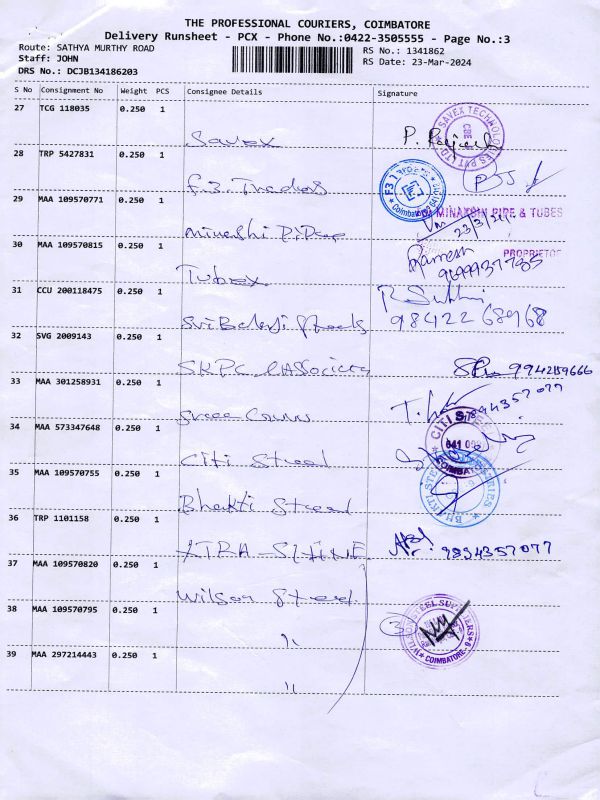 THE PROFESSIONAL COURIERS, COIMBATORE
Delivery Runsheet - PCX - Phone No.:0422-3505555 - Page No.:3
Route: SATHYA MURTHY ROAD
Staff: JOHN
DRS No.: DCJB134186203
RS No.: 1341862
RS Date: 23-Mar-2024
S No Consignment No Weight PCS Consignee Details Signature
27 TCG 118035 0.250 1
Savex P. Rajesh
SAVEX TECHNOLOGIES PVT LTD CBE
28 TRP 5427831 0.250 1
F.3. Traders
29 MAA 109570771 0.250 1
Coimbatore 641
MINAKSHI PIPE & TUBES
23/3/24
30 MAA 109570815 0.250 1
PROPRIETOR
Ramesh
Tubex
31 CCU 200118475 0.250 1
Sri Balaji Steels 98422 68968
32 SVG 2009143 0.250 1
SKPC 9942159666
33 MAA 301258931 0.250 1
9894357077
34 MAA 573347648 0.250 1
CITI STEEL 641 00 COIMBATORE
Citi Steel
35 MAA 109570755 0.250 1
Bhakti Steel
BHAKTI STEEL
36 TRP 1101158 0.250 1
XTRA SHINE 9894357077
37 MAA 109570820 0.250 1
Wilson Steel.
38 MAA 109570795 0.250 1
〃 3
WILSON STEEL SUPPLIERS COIMBATORE - 9
39 MAA 297214443 0.250 1
〃